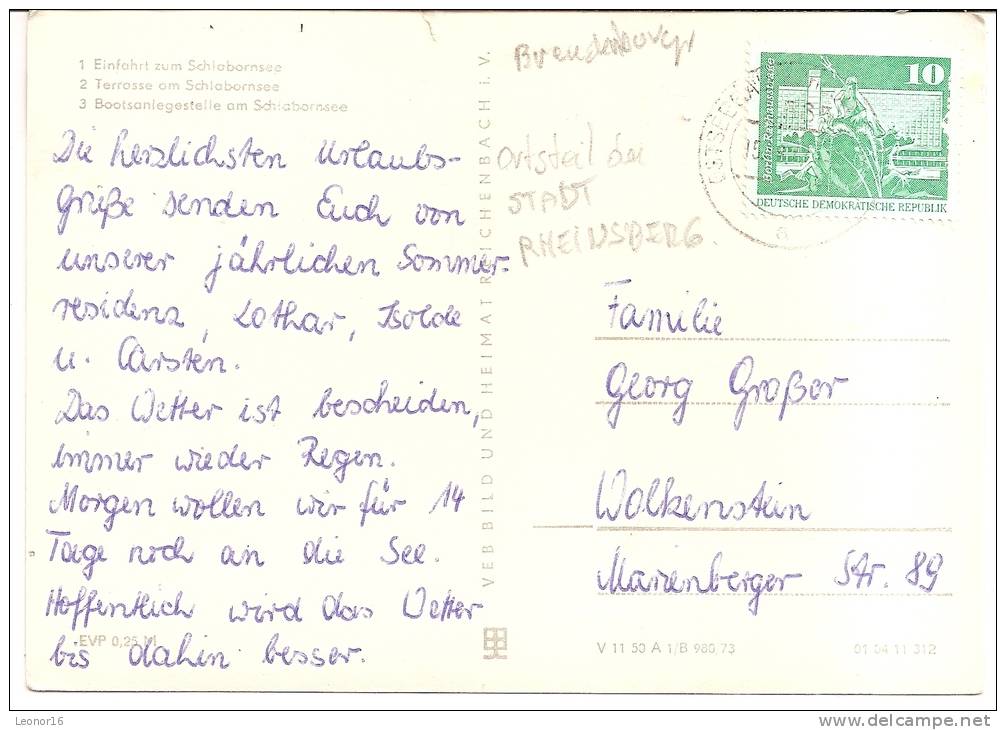 1 Einfahrt zum Schlabornsee
2 Terrasse am Schlabornsee
3 Bootsanlegestelle am Schlabornsee
Die herzlichsten Urlaubs-
grüße senden Euch von
unserer jährlichen Sommer-
residenz, Lothar, Isolde
u. Carsten.
Das Wetter ist bescheiden,
immer wieder Regen.
Morgen wollen wir für 14
Tage noch an die See.
Hoffentlich wird das Wetter
bis dahin besser.
EVP 0,25 M
VEB BILD UND HEIMAT REICHENBACH i. V.
Ortsteil der
STADT
RHEINSBERG.
10
DEUTSCHE DEMOKRATISCHE REPUBLIK
a
Familie
Georg Großer
Wolkenstein
Marienberger Str. 89
V 11 50 A 1/B 980/73
01 04 11 312
Leonor16
www.delcampe.net